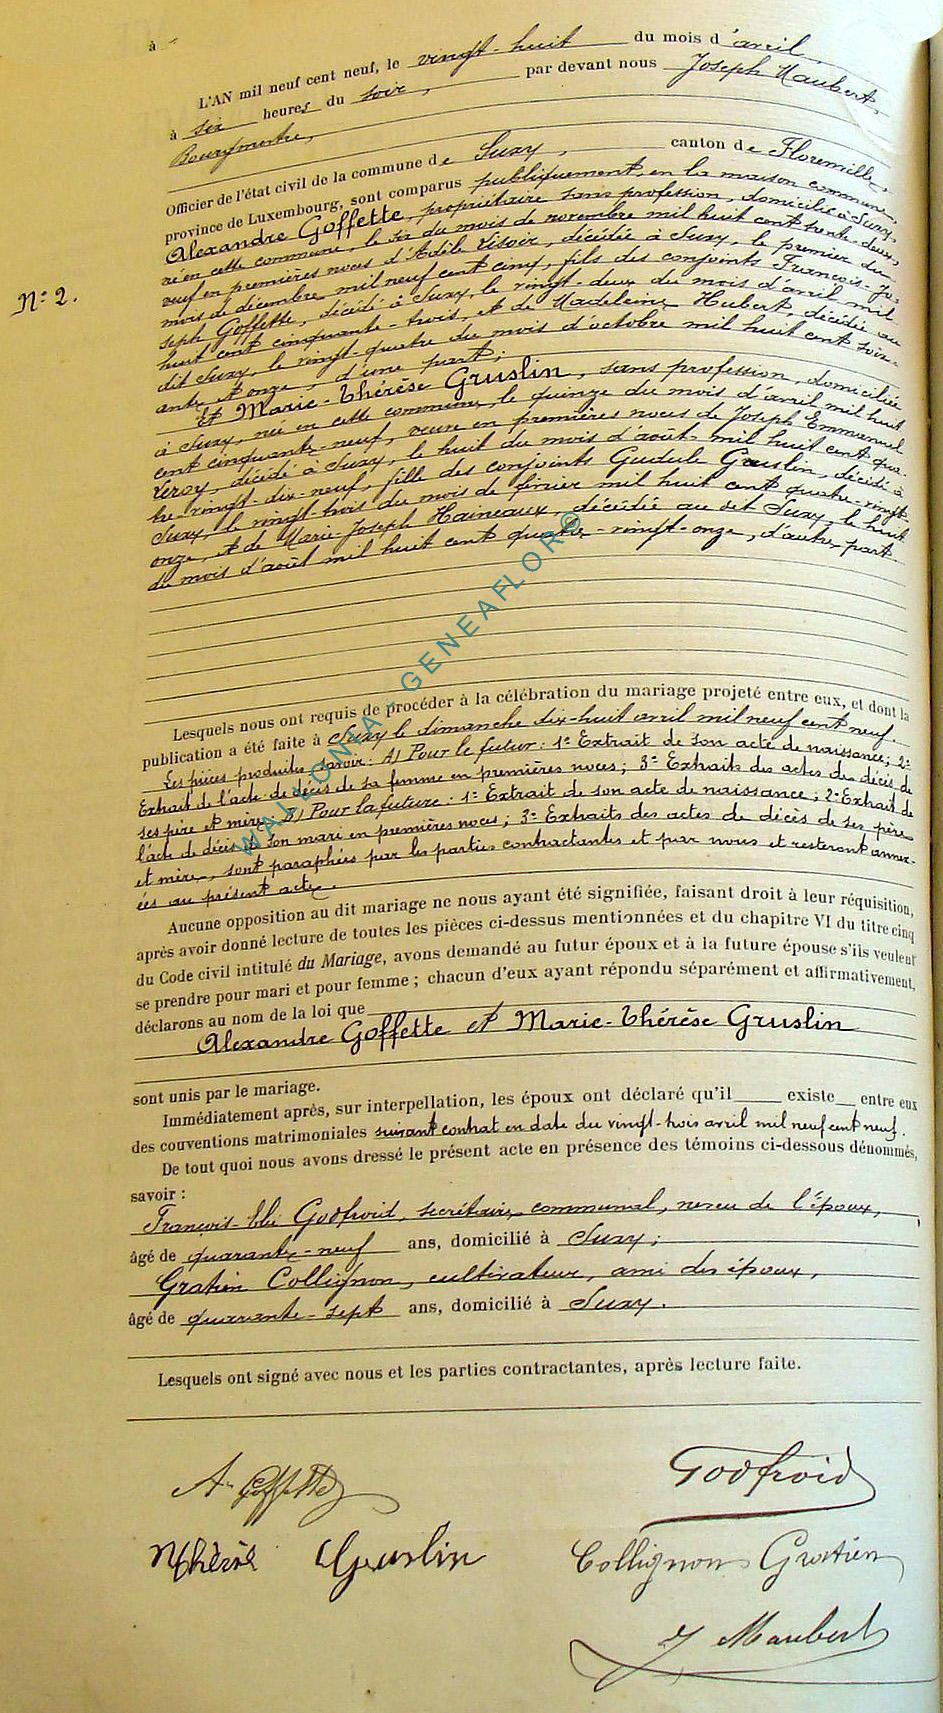 à
L'AN mil neuf cent neuf, le vingt-huit du mois d'avril,
à six heures du soir, par devant nous Joseph Maubert,
Bourgmestre,
Officier de l'état civil de la commune de Suxy, canton de Florenville,
province de Luxembourg, sont comparus publiquement, en la maison commune,
Alexandre Goffette, propriétaire sans profession, domicilié à Suxy,
né en cette commune, le six du mois de novembre mil huit cent trente-deux,
veuf en premières noces d'Adèle, décédée à Suxy, le premier du
mois de décembre mil neuf cent cinq, fils des conjoints François-Jo-
seph Goffette, décédé à Suxy, le vingt-deux du mois d'avril mil
huit cent cinquante-trois, et de Madeleine Hubert, décédée au
dit Suxy, le vingt-quatre du mois d'octobre mil huit cent soix-
ante et onze, d'une part;
N° 2.
Et Marie-Thérèse Gruslin, sans profession, domiciliée
à Suxy, née en cette commune, le quinze du mois d'avril mil huit
cent cinquante-neuf, veuve en premières noces de Joseph Emmanuel
Leroy, décédé à Suxy, le huit du mois d'août mil huit cent qua-
tre-vingt-dix-neuf, fille des conjoints Gudule Gruslin, décédé à
Suxy, le vingt-trois du mois de février mil huit cent quatre-vingt-
onze, et de Marie-Joseph Haineaux, décédée au dit Suxy, le huit
du mois d'août mil huit cent quatre-vingt-onze, d'autre part.
Lesquels nous ont requis de procéder à la célébration du mariage projeté entre eux, et dont la
publication a été faite à Suxy le dimanche dix-huit avril mil neuf cent neuf.
Les pièces produites, savoir: A) Pour le futur: 1° Extrait de son acte de naissance; 2°
Extrait de l'acte de décès de sa femme en premières noces; 3° Extraits des actes de décès de
ses père et mère. B) Pour la future: 1° Extrait de son acte de naissance; 2° Extrait de
l'acte de décès de son mari en premières noces; 3° Extraits des actes de décès de ses père
et mère, sont paraphées par les parties contractantes et par nous et resteront annex-
ées au présent acte.
Aucune opposition au dit mariage ne nous ayant été signifiée, faisant droit à leur réquisition,
après avoir donné lecture de toutes les pièces ci-dessus mentionnées et du chapitre VI du titre cinq
du Code civil intitulé du Mariage, avons demandé au futur époux et à la future épouse s'ils veulent
se prendre pour mari et pour femme; chacun d'eux ayant répondu séparément et affirmativement,
déclarons au nom de la loi que
Alexandre Goffette et Marie-Thérèse Gruslin
sont unis par le mariage.
Immédiatement après, sur interpellation, les époux ont déclaré qu'il existe entre eux
des conventions matrimoniales suivant contrat en date du vingt-trois avril mil neuf cent neuf.
De tout quoi nous avons dressé le présent acte en présence des témoins ci-dessous dénommés,
savoir:
François Godfroid, secrétaire communal, neveu de l'époux,
âgé de quarante-neuf ans, domicilié à Suxy;
Gratien Collignon, cultivateur, ami des époux,
âgé de quarante-sept ans, domicilié à Suxy.
Lesquels ont signé avec nous et les parties contractantes, après lecture faite.
A. Goffette Godfroid
Thérèse Gruslin Collignon Gratien
J Maubert
WALLONIA-GENEAFLOR©